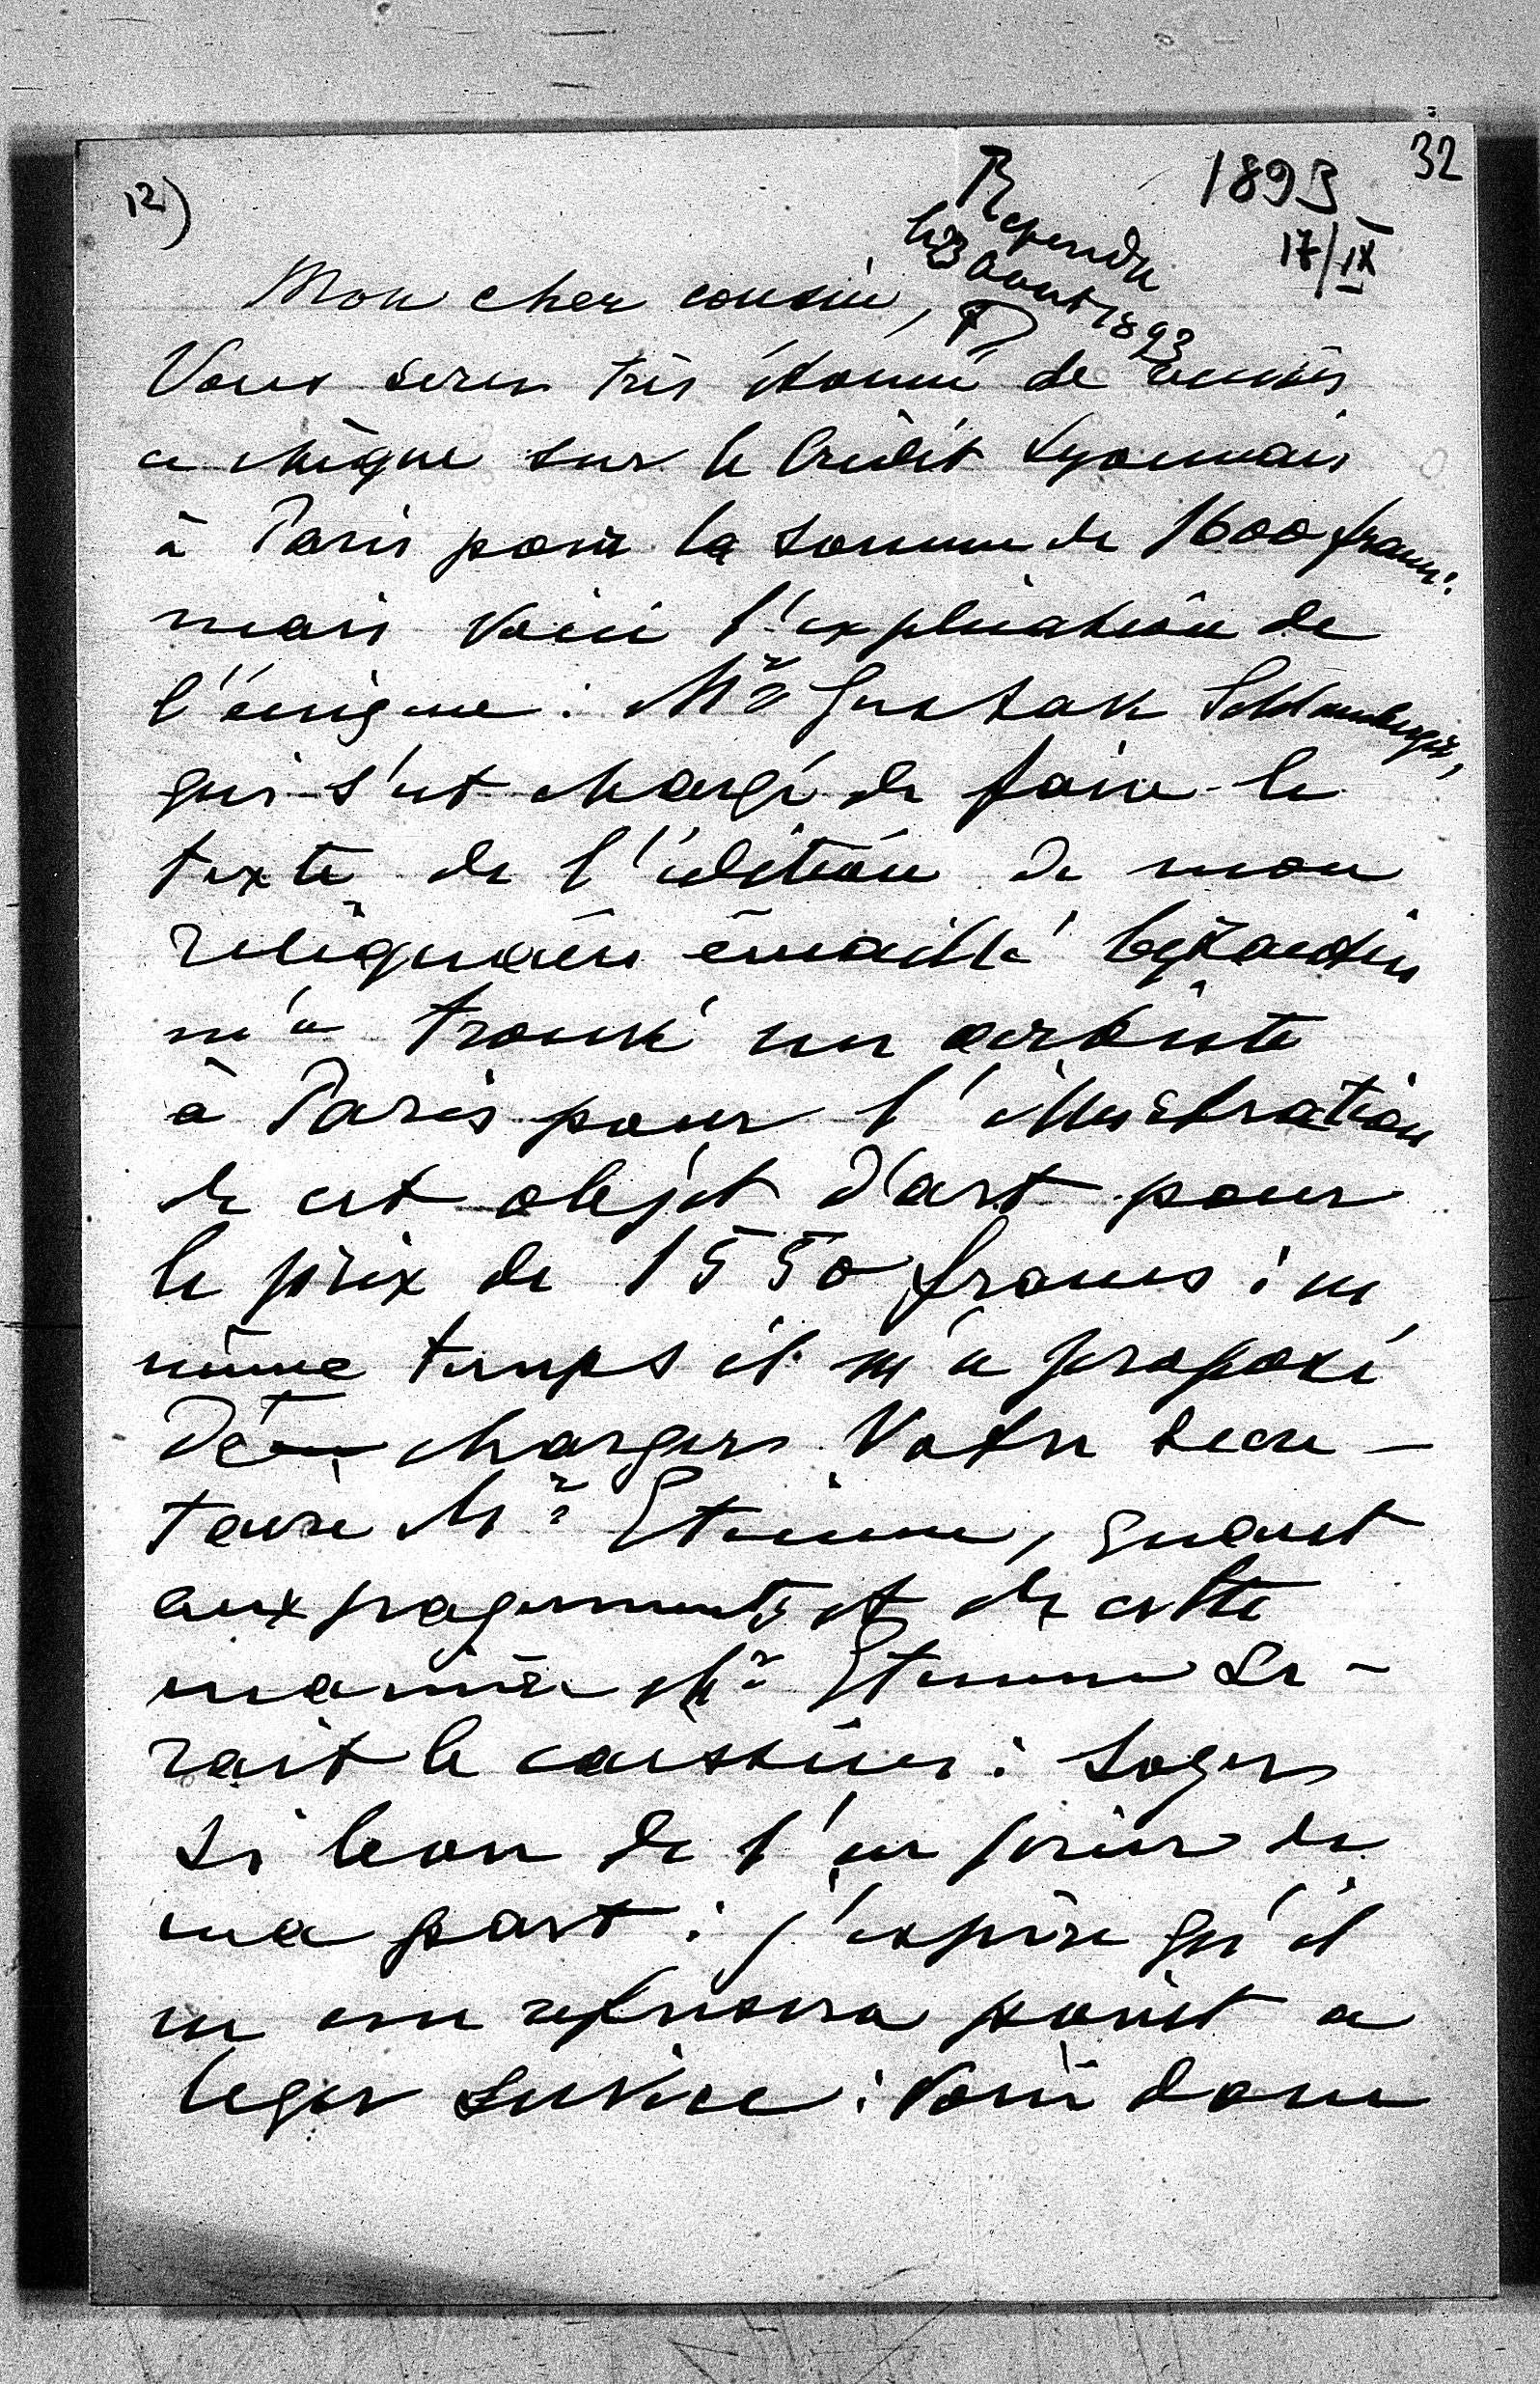 32
12)
1893
17/IX
Repondu
le 23 Aout 1893
Mon cher cousin,
Vous serez très étonné de
ce chèque sur le Crédit Lyonnais
à Paris pour la somme de 1600 francs:
mais voici l'explication de
l'énigme: Mr Gustav Schlumberger,
qui s'est chargé de faire le
texte de l'édition de mon
reliquaire émaillé byzantin
m'a trouvé un artiste
à Paris pour l'illustration
de cet objet d'art pour
le prix de 1550 francs: en
même temps il m'a proposé
de charger Votre secre-
taire Mr Etienne, quant
aux payements et de cette
manière Mr Etienne se-
rait le caissier: soyez
si bon de l'en prier de
ma part: j'espère qu'il
ne me refusera point ce
leger service: Voici donc